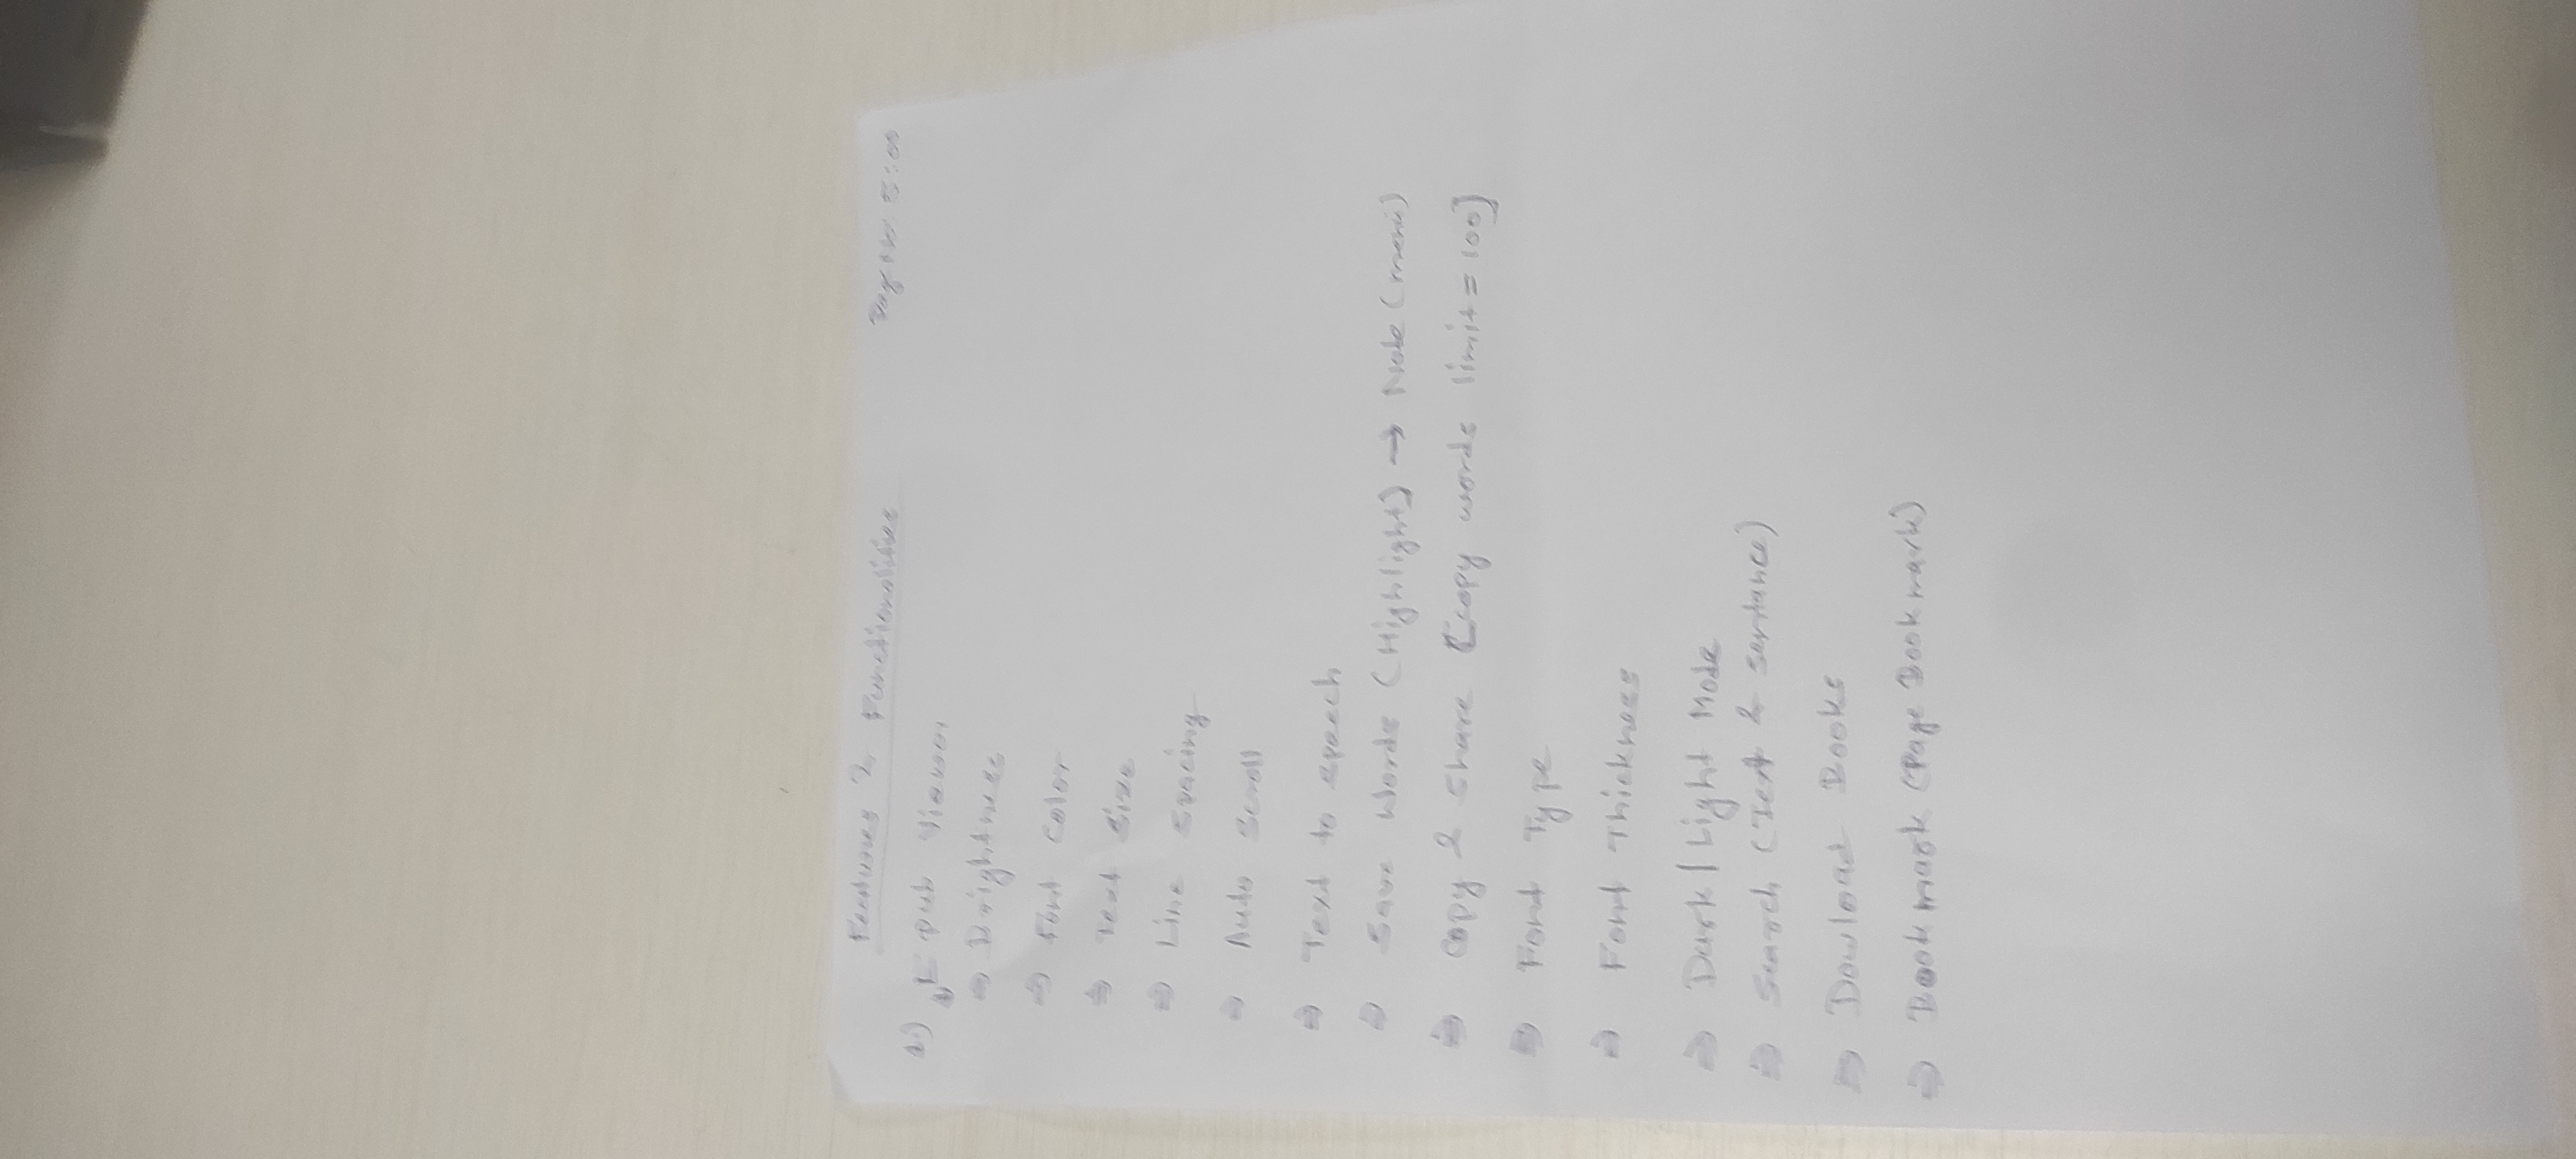 Features & Functionalities 5:00
1.) Epub Viewer
⇒ Brightness
⇒ Font Color
⇒ Text Size
⇒ Line Spacing
⇒ Auto Scroll
⇒ Text to speech
⇒ Save Words (Highlight) → Note (menu)
⇒ Copy & Share [copy words limit = 100]
⇒ Font Type
⇒ Font Thickness
⇒ Dark / Light Mode
⇒ Search (Text & sentance)
⇒ Dowload Books
⇒ Bookmark (Page Bookmark)